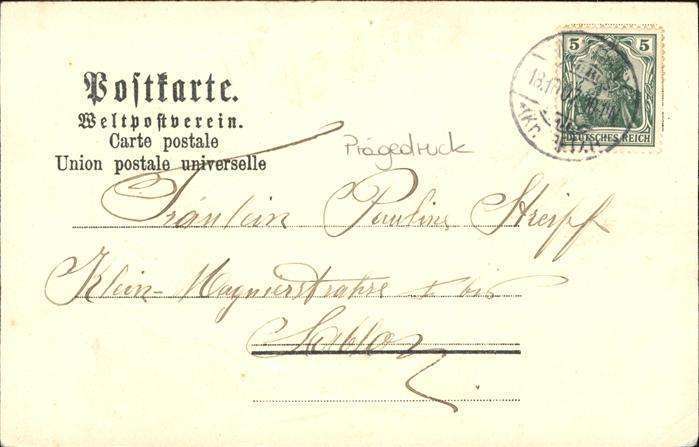 Postkarte.
Weltpostverein.
Carte postale
Union postale universelle
5 5
DEUTSCHES REICH
Prägedruck
Fräulein Pauline Streipf
Klein-Magnierstrahse bis
Sablon